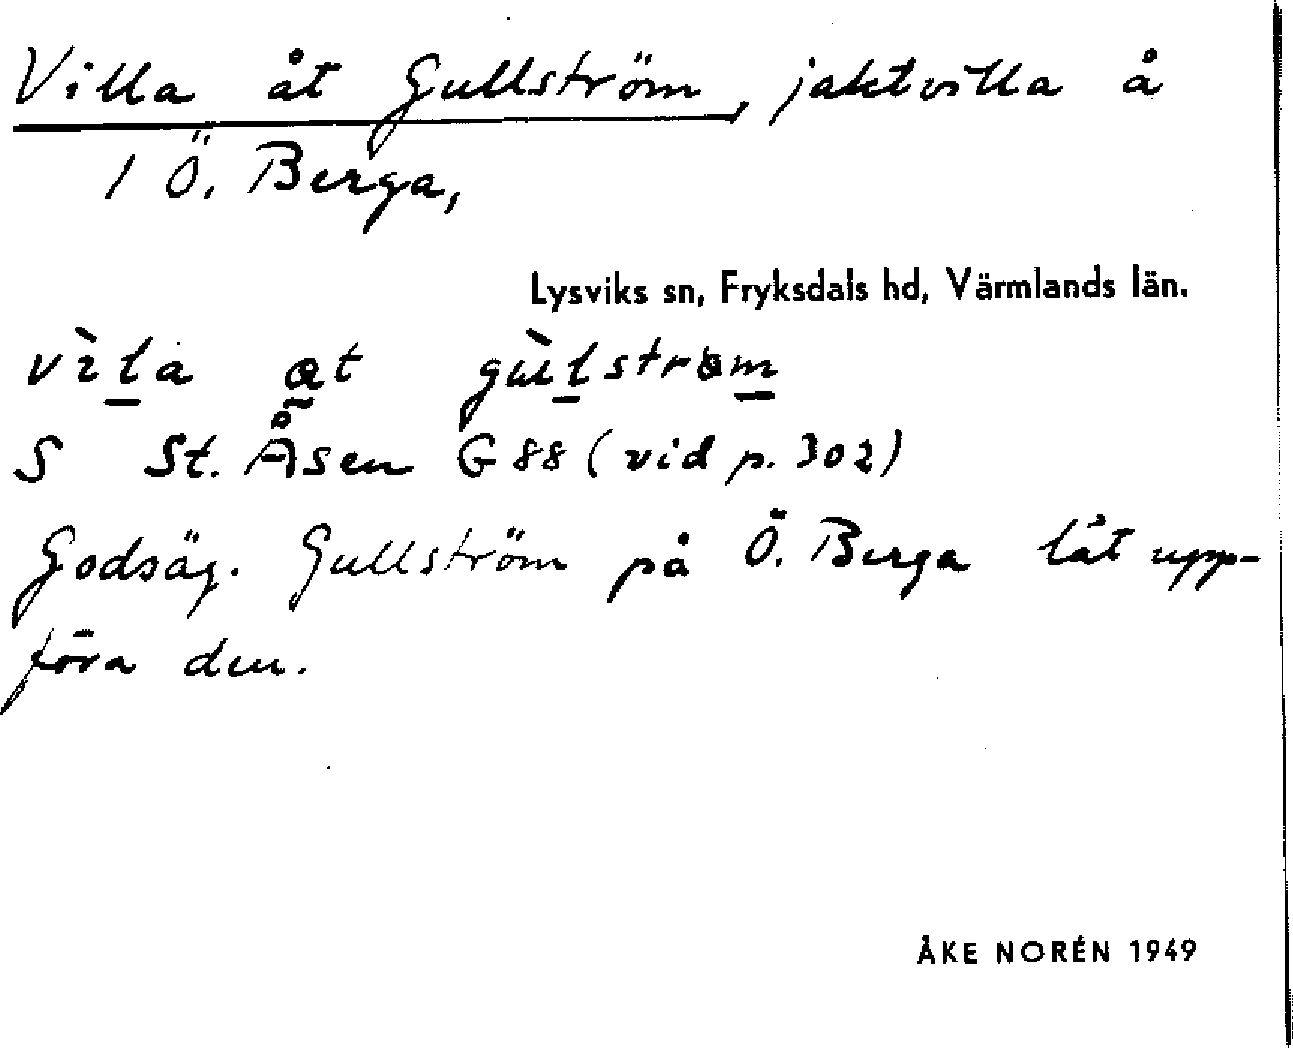 Villa åt Gullström, jaktvilla å
1 Ö. Berga,
Lysviks sn, Fryksdals hd, Värmlands län.
vìl̠a at gùl̠strөm̠
S St. Åsen G 88 (vid p. 302)
Godsäg. Gullström på Ö. Berga låt upp-
föra den.
ÅKE NORÉN 1949